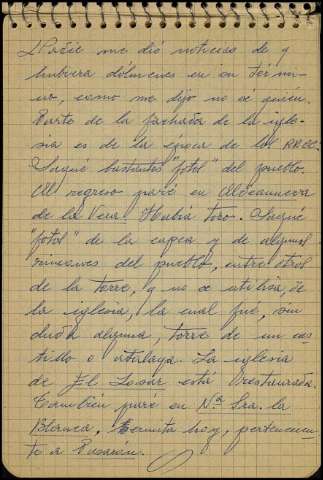 Nadie me dió noticias de q
hubiera dólmenes en su térmi-
no, como me dijo no sé quién.
Parte de la fachada de la igle-
sia es de la época de los RR.CC.
Saqué bastantes "fotos" del pueblo.
Al regreso paré en Aldeanueva
de la Vera. Había toro. Saqué
"fotos" de la capea y de algunos
rincones del pueblo, entre otros
de la torre, q no se utiliza, de
la iglesia, la cual fué, sin
duda alguna, torre de un cas-
tillo o atalaya. La iglesia
de El Losar está restaurada.
También paré en Nª Sra. la
Blanca, Ermita hoy, pertenecien-
te a Pasarón.